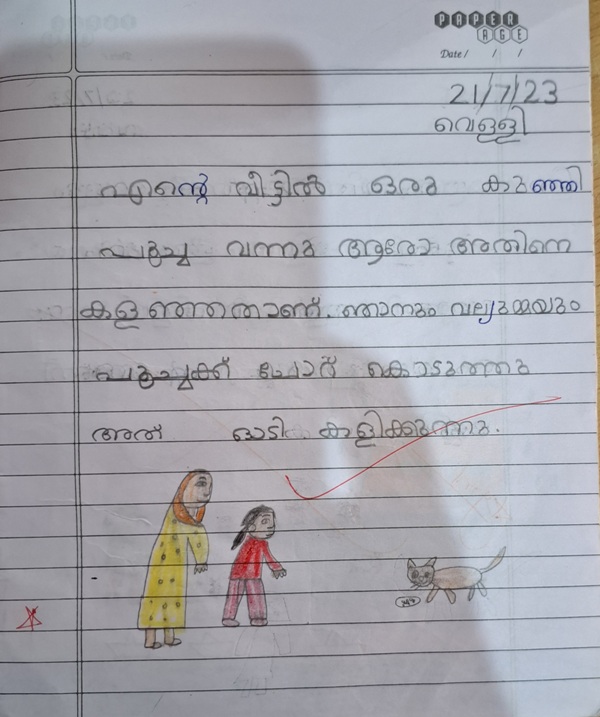 PAPER
AGE
Date / / /
21/7/23
വെള്ളി
എൻ്റെ വീട്ടിൽ ഒരു കുഞ്ഞി
പൂച്ച വന്നു ആരോ അതിനെ
കളഞ്ഞതാണ്. ഞാനും വല്യുമ്മയും
പൂച്ചക്ക് ചോറ് കൊടുത്തു
അത് ഓടി കളിക്കുന്നു.